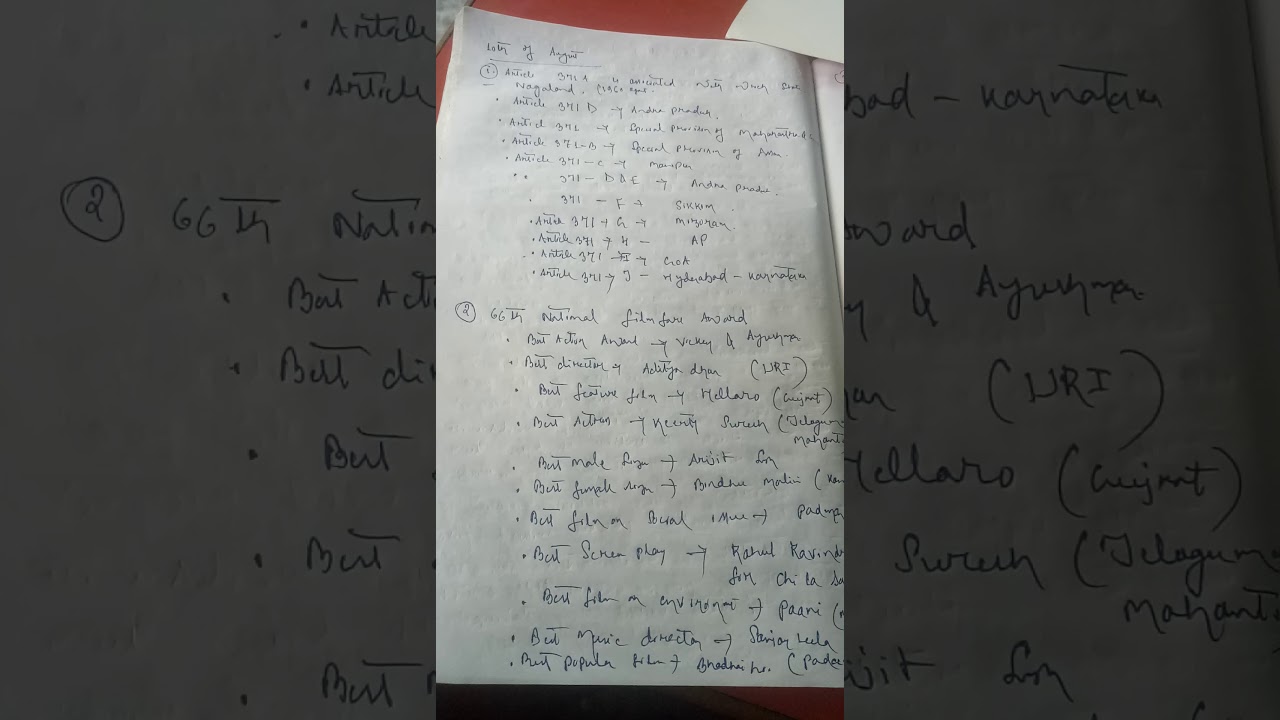 10th of August
① Article 371 A is associated with which state
– Nagaland. (1960
• Article 371 D → Andra pradesh.
• Article 371 → Special provision of Maharashtra &
• Article 371-B → Special provision of Assam.
• Article 371-C → Manipur
•• 371 – D & E → Andra prade.
• 371 – F → Sikkim.
• Article 371 + G → Mizoram.
• Article 371 → H – AP
• Article 371 – I → GOA
• Article 371 → J – Hyderabad – Karnataka
② 66th National film fare Award
• Best Action Award → Vickey & Ayushman
• Best director → Aditya dhar (URI)
• Best feature film → Hellaro (Gujrat)
• Best Actress → Keerty Suresh (Telagum
Mahanti
• Best male Singer → Arijit Singh
• Best female singer → Bindhu Malini (Kan
• Best film on Social issue → padman
• Best Screen play → Rahul Ravindr
for chi la Sa
• Best film on environment → paani (m
• Best Music director → Sanjay Leela
• Best popular film → Bhadhai ho. (padm